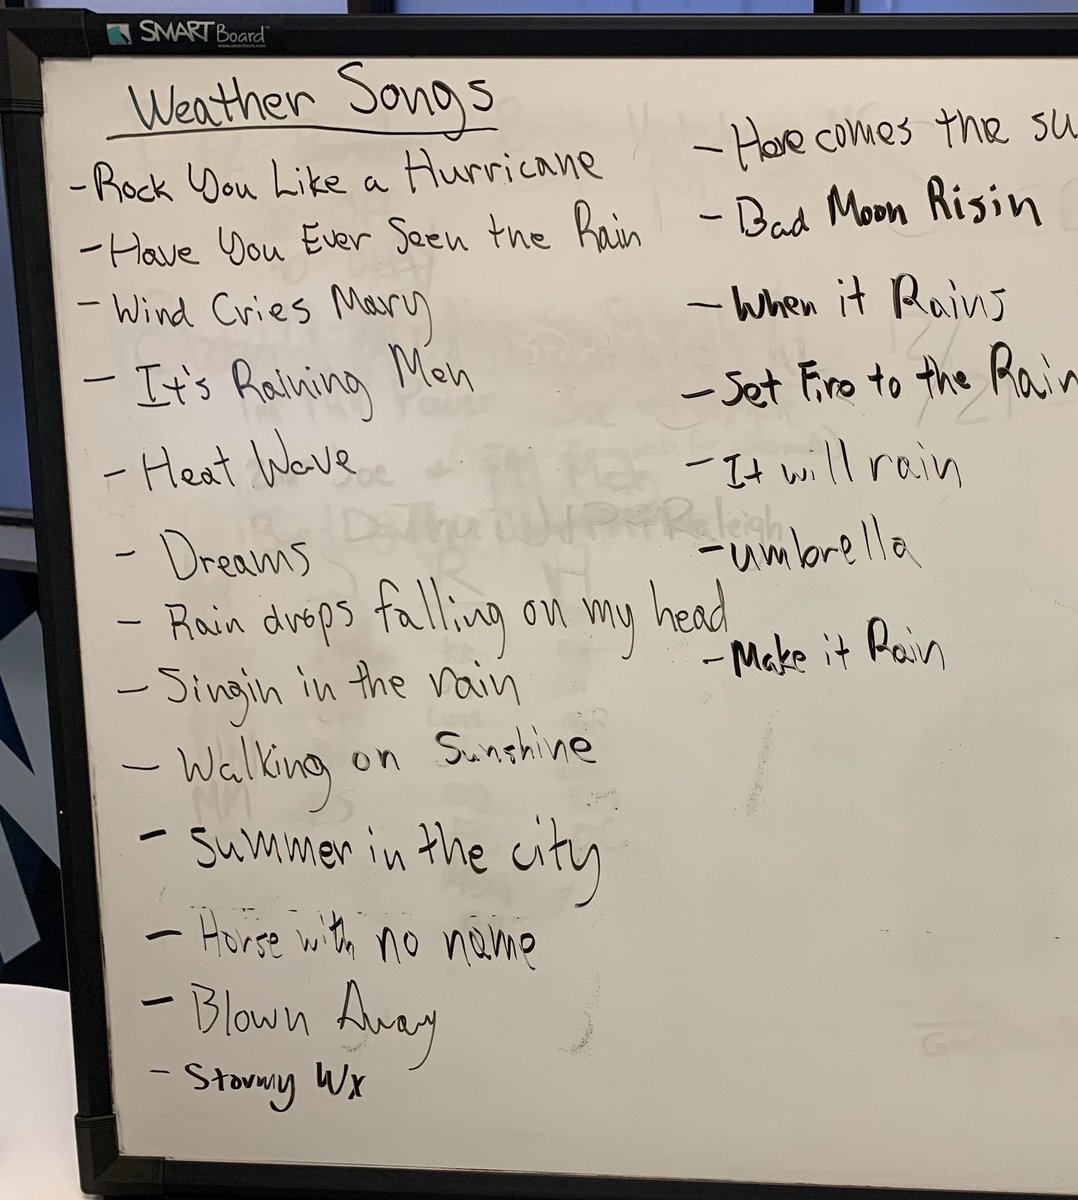 SMART Board™
www.smarttech.com
Weather Songs
- Rock You Like a Hurricane
- Have You Ever Seen the Rain
- Wind Cries Mary
- It's Raining Men
- Heat Wave
- Dreams
- Rain drops falling on my head
- Singin in the rain
- Walking on Sunshine
- Summer in the city
- Horse with no name
- Blown Away
- Stormy Wx
- Here comes the su
- Bad Moon Risin
- When it Rains
- Set Fire to the Rain
- It will rain
- umbrella
- Make it Rain